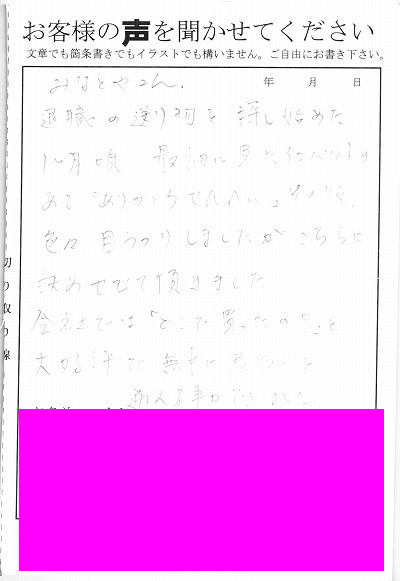 お客様の声を聞かせてください
文章でも箇条書きでもイラストでも構いません。ご自由にお書き下さい。
みなとやさん、
年 月 日
退職の送り物を探し始めた
頃 最初に見た
ある「ありがとうせんべい」
色々目うつりしましたがこちらに
決めさせて頂きました
会社では「どこで買ったの?」と
大好評で 無事に
迎える事ができました
切り取り線